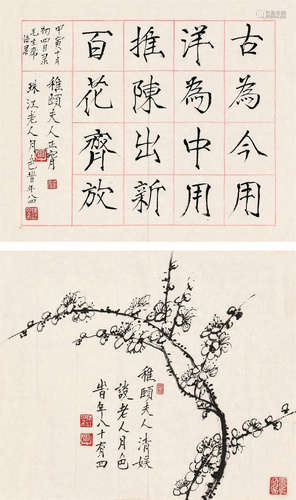 古為今用
洋為中用
推陳出新
百花齊放
甲寅十月
初四日录
毛主席
語录
稚頤夫人正腕
珠江老人月色時年八四
稚頤夫人清娱
談老人月色
時年八十有四